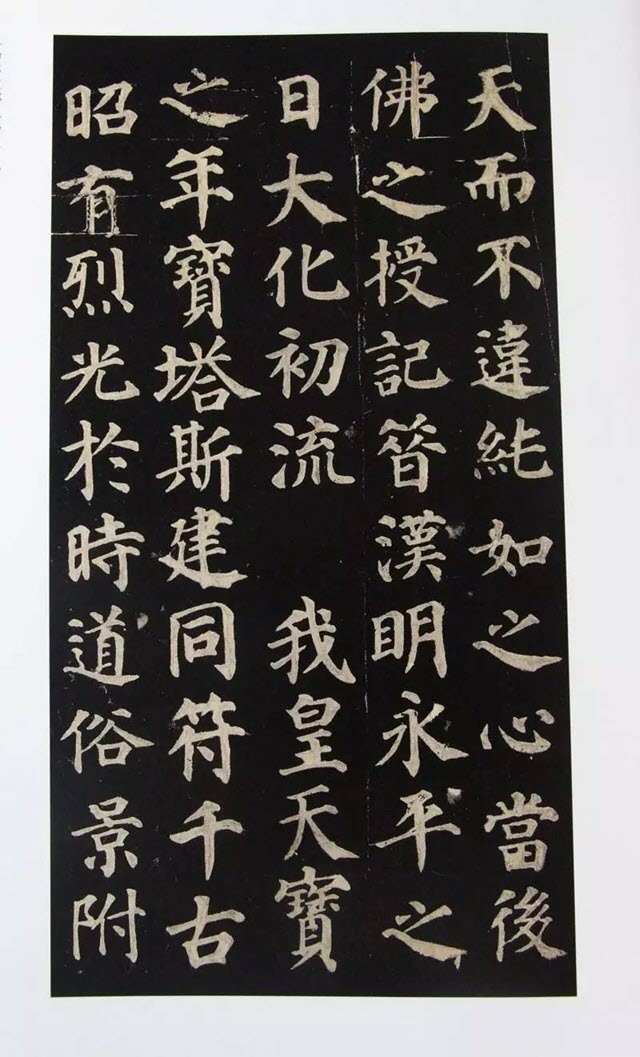 天而不違純如之心當後
佛之授記昔漢明永平之
日大化初流 我皇天寶
之年寶塔斯建同符千古
昭有烈光於時道俗景附